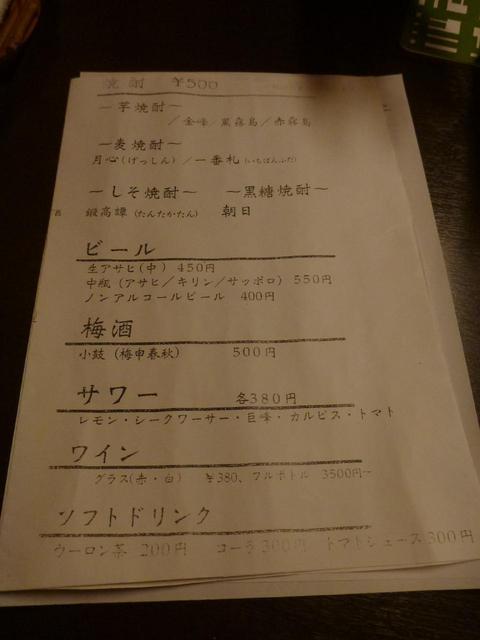 焼酎 ￥500
～芋焼酎～
／金峰／黒霧島／赤霧島
～麦焼酎～
月心(げっしん) ／一番札(いちばんふだ)
～しそ焼酎～ ～黒糖焼酎～
鍛高譚 (たんたかたん) 朝日
ビール
生アサヒ(中) 450円
中瓶 (アサヒ／キリン／サッポロ) 550円
ノンアルコールビール 400円
梅酒
小鼓 (梅申春秋) 500円
サワー 各380円
レモン・シークワーサー・巨峰・カルピス・トマト
ワイン
グラス(赤・白) ￥380、フルボトル 3500円～
ソフトドリンク
ウーロン茶 200円 コーラ 300円 トマトジュース 300円